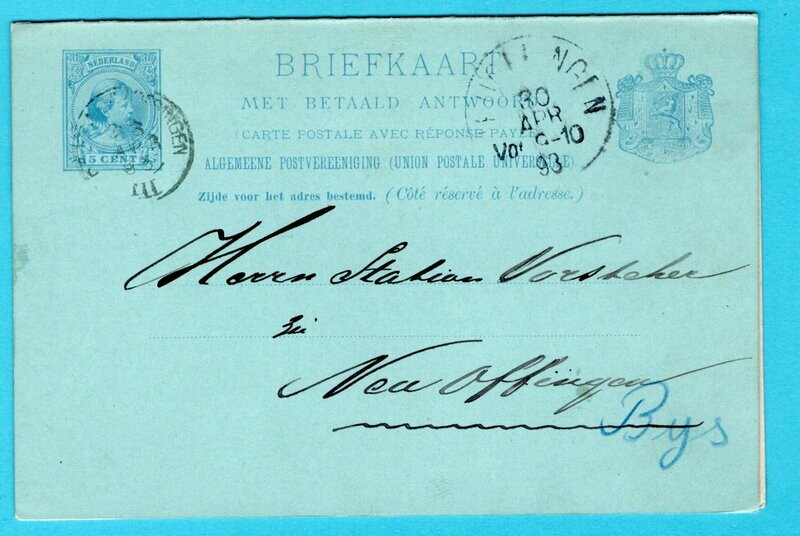 NEDERLAND
5 CENT
BRIEFKAART
MET BETAALD ANTWOORD
(CARTE POSTALE AVEC RÉPONSE PAYÉE)
ALGEMEENE POSTVEREENIGING (UNION POSTALE UNIVERSELLE)
Zijde voor het adres bestemd. (Côté réservé à l'adresse.)
30
APR
8-10
93
Herrn Station Vorsteher
zu
Neu Offingen
Bys